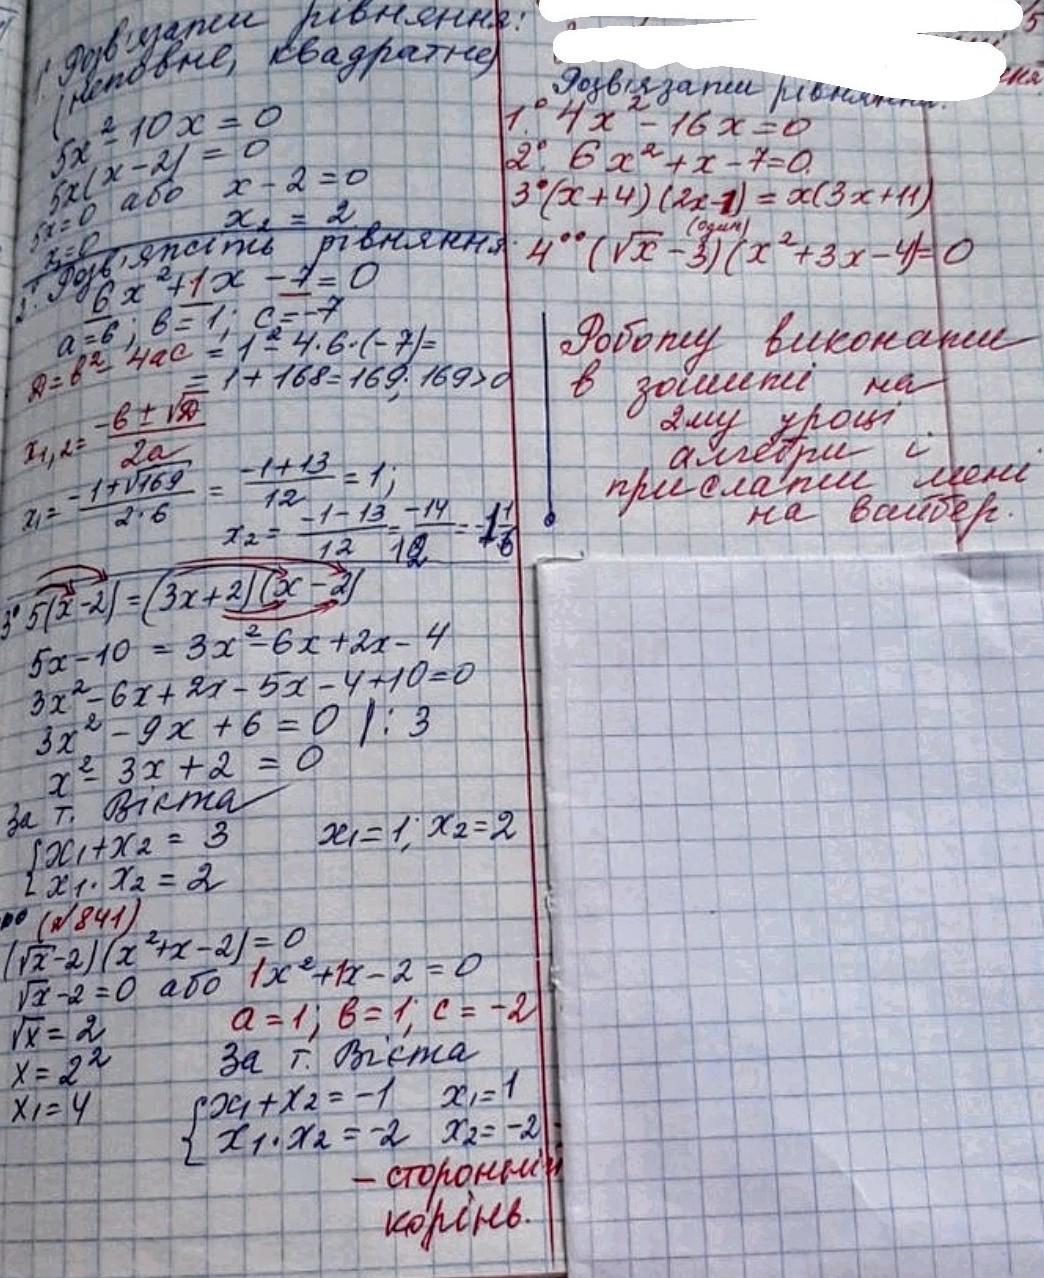 1. Розв'язати рівняння:
(неповне, квадратне)
5x² - 10x = 0
5x(x - 2) = 0
5x = 0 або x - 2 = 0
x₁ = 0 x₂ = 2
2. Розв'яжіть рівняння
6x² + 1x - 7 = 0
a = 6; b = 1; c = -7
D = b² - 4ac = 1² - 4·6·(-7) =
= 1 + 168 = 169; 169 > 0
x₁,₂ = (-b ± √D) / 2a
x₁ = (-1 + √169) / 2·6 = (-1 + 13) / 12 = 1;
x₂ = (-1 - 13) / 12 = -14 / 12 = -1 1/6
3° 5(x - 2) = (3x + 2)(x - 2)
5x - 10 = 3x² - 6x + 2x - 4
3x² - 6x + 2x - 5x - 4 + 10 = 0
3x² - 9x + 6 = 0 | : 3
x² - 3x + 2 = 0
За т. Вієта
{ x₁ + x₂ = 3 x₁ = 1; x₂ = 2
x₁ · x₂ = 2
(№841)
(√x - 2)(x² + x - 2) = 0
√x - 2 = 0 або 1x² + 1x - 2 = 0
√x = 2 a = 1; b = 1; c = -2
x = 2² За т. Вієта
x₁ = 4 { x₁ + x₂ = -1 x₁ = 1
x₁ · x₂ = -2 x₂ = -2
- сторонній
корінь.
5
Розв'язати рівняння.
1.° 4x² - 16x = 0
2°. 6x² + x - 7 = 0.
3° (x + 4)(2x - 1) = x(3x + 11)
(один)
4°° (√x - 3)(x² + 3x - 4) = 0
Роботу виконати
в зошиті на
2му уроці
алгебри і
прислати мені
на вайбер.